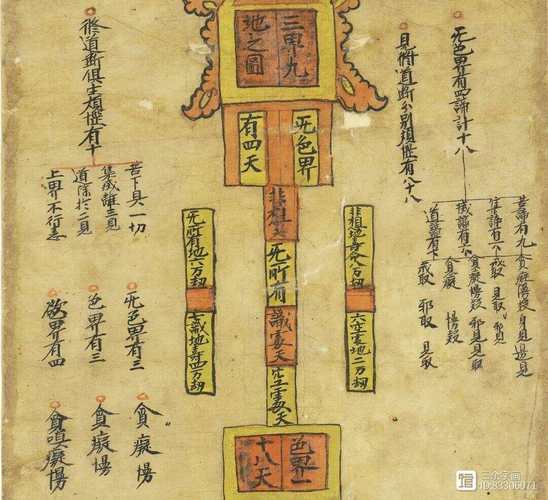 三界九
地之圖
无色界
有四天
非想天
无所有
識處天
空處天
色界一
十八天
非想地壽八万劫
六空處地二万劫
无所有地六万劫
七識地壽四万劫
无色界有四諦計十八
見修道斷分別煩惱有八十八
苦諦有九
貪癡慢疑
身見邊見
集諦有六
戒取
見取
邪見
滅諦有六
貪癡慢疑
邪見見取
道諦有七
貪癡
慢疑
戒取
邪取
見取
修道斷俱生煩惱有十
苦下具一切
集滅離三見
道除於二見
上界不行恚
无色界有三
色界有三
欲界有四
貪癡慢
貪癡慢
貪嗔癡慢
三个字画
ID:83306071